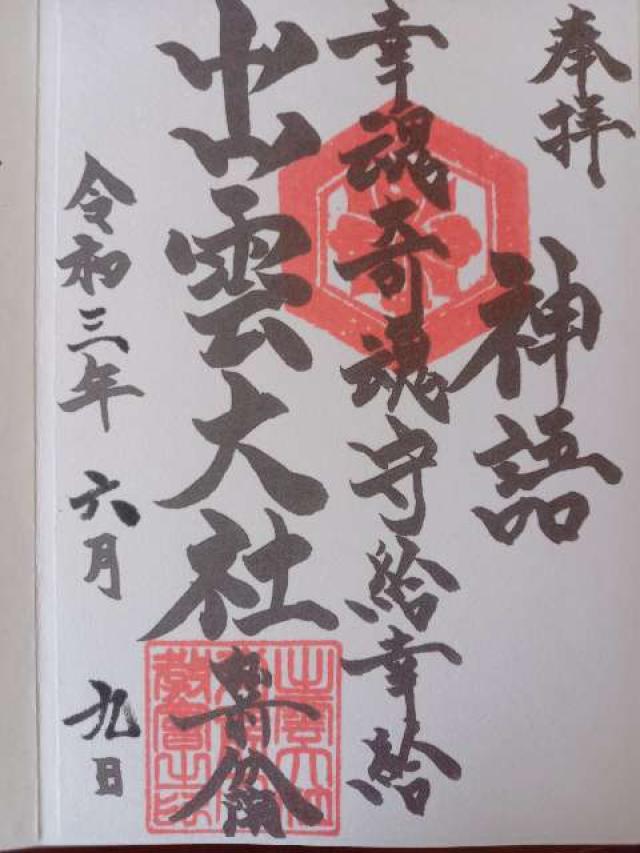 奉拝
神語
幸魂奇魂守給幸給
出雲大社
令和三年 六月 九日